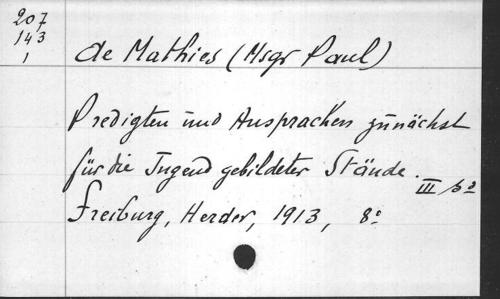 207
143
1
de Mathies (Msgr Paul)
Predigten und Ansprachen zunächst
für die Jugend gebildeter Stände.
III
Freiburg, Herder, 1913, 8°